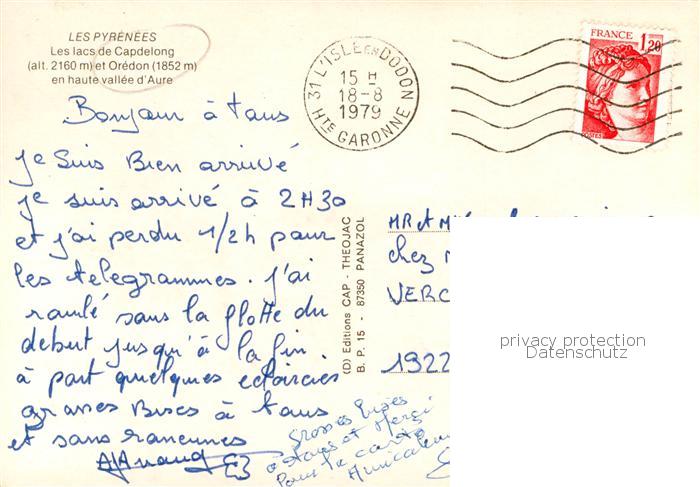 LES PYRÉNÉES
Les lacs de Capdelong
(alt. 2160 m) et Orédon (1852 m)
en haute vallée d'Aure
31 L'ISLE EN DODON
15 H
18-8
1979
HTE GARONNE
FRANCE 1,20
POSTES
Bonjour à tous
je suis Bien arrivé
je suis arrivé à 2H30
et j'ai perdu 1/2h pour
les telegrammes. j'ai
roulé sous la flotte du
debut jusqu'à la fin
à part quelques eclaircies
grosses Bises à tous
et sans rancunes
Grosses bises
a tous et Merci
Pour le carte
Amicalem
(D) Editions CAP - THEOJAC
B. P. 15 - 87350 PANAZOL
MR et M
chez
VERC
1922
privacy protection
Datenschutz